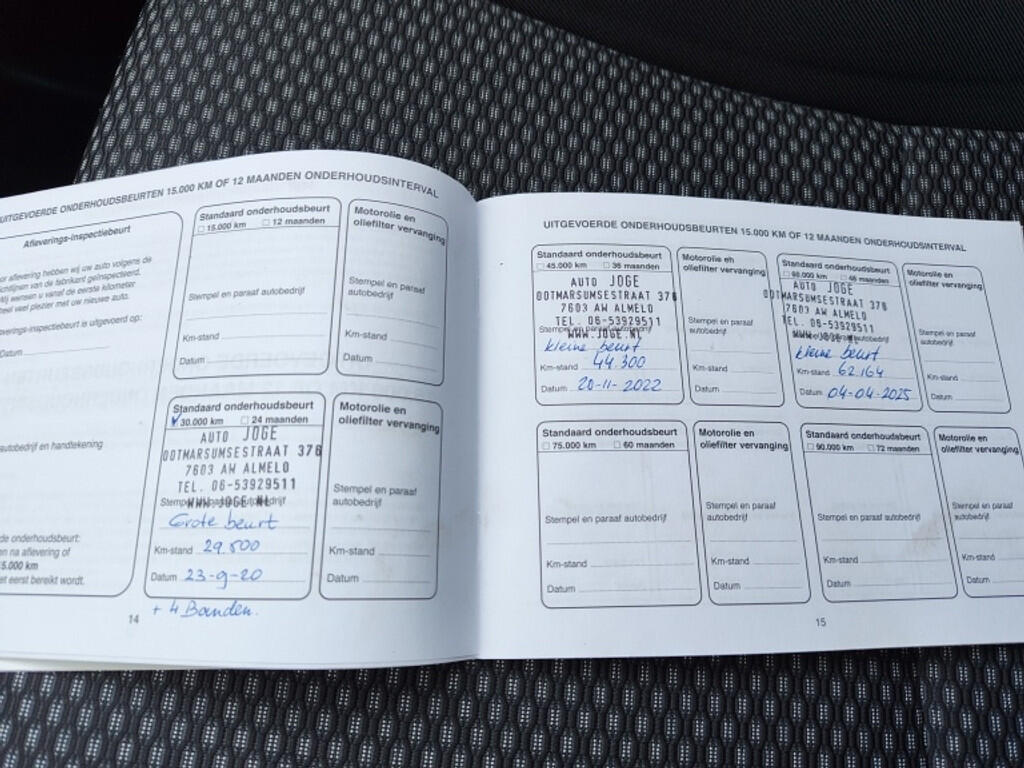 UITGEVOERDE ONDERHOUDSBEURTEN 15.000 KM OF 12 MAANDEN ONDERHOUDSINTERVAL
Afleverings-inspectiebeurt
aflevering hebben wij uw auto volgens de
van de fabrikant geïnspecteerd.
wensen u vanaf de eerste kilometer
heel veel plezier met uw nieuwe auto.
is uitgevoerd op:
Datum
autobedrijf en handtekening
de onderhoudsbeurt:
en na aflevering of
5.000 km
eerst bereikt wordt.
Standaard onderhoudsbeurt
15.000 km 12 maanden
Stempel en paraaf autobedrijf
Km-stand
Datum
Motorolie en
oliefilter vervanging
Stempel en paraaf
autobedrijf
Km-stand
Datum
Standaard onderhoudsbeurt
✓ 30.000 km 24 maanden
AUTO JOGE
OOTMARSUMSESTRAAT 376
7603 AW ALMELO
TEL. 06-53929511
Stempel en paraaf autobedrijf
WWW.JOGE.NL
Grote beurt
Km-stand 29.500
Datum 23-9-20
+ 4 Banden.
Motorolie en
oliefilter vervanging
Stempel en paraaf
autobedrijf
Km-stand
Datum
14
UITGEVOERDE ONDERHOUDSBEURTEN 15.000 KM OF 12 MAANDEN ONDERHOUDSINTERVAL
Standaard onderhoudsbeurt
45.000 km 36 maanden
AUTO JOGE
OOTMARSUMSESTRAAT 376
7603 AW ALMELO
TEL. 06-53929511
Stempel en paraaf autobedrijf
WWW.JOGE.NL
kleine beurt
Km-stand 44.300
Datum 20-11-2022
Motorolie en
oliefilter vervanging
Stempel en paraaf
autobedrijf
Km-stand
Datum
Standaard onderhoudsbeurt
60.000 km 48 maanden
AUTO JOGE
OOTMARSUMSESTRAAT 376
7603 AW ALMELO
TEL. 06-53929511
Stempel en paraaf autobedrijf
WWW.JOGE.NL
kleine beurt
Km-stand 62.164
Datum 04-04-2025
Motorolie en
oliefilter vervanging
Stempel en paraaf
autobedrijf
Km-stand
Datum
Standaard onderhoudsbeurt
75.000 km 60 maanden
Stempel en paraaf autobedrijf
Km-stand
Datum
Motorolie en
oliefilter vervanging
Stempel en paraaf
autobedrijf
Km-stand
Datum
Standaard onderhoudsbeurt
90.000 km 72 maanden
Stempel en paraaf autobedrijf
Km-stand
Datum
Motorolie en
oliefilter vervanging
Stempel en paraaf
autobedrijf
Km-stand
Datum
15